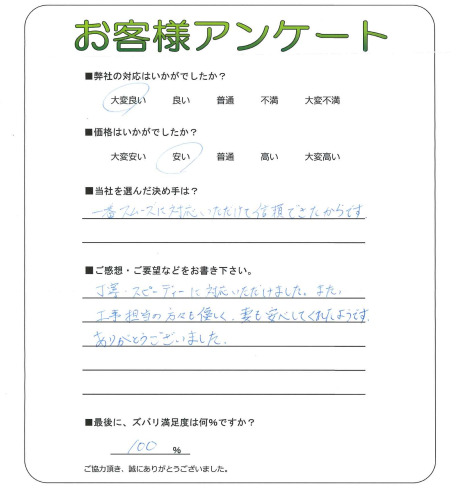 お客様アンケート
■弊社の対応はいかがでしたか？
大変良い 良い 普通 不満 大変不満
■価格はいかがでしたか？
大変安い 安い 普通 高い 大変高い
■当社を選んだ決め手は？
一番スムーズに対応いただけて信頼できたからです
■ご感想・ご要望などをお書き下さい。
丁寧・スピーディーに対応いただけました。また
工事担当の方々も優しく、妻も安心してくれたようです。
ありがとうございました。
■最後に、ズバリ満足度は何%ですか？
100 %
ご協力頂き、誠にありがとうございました。